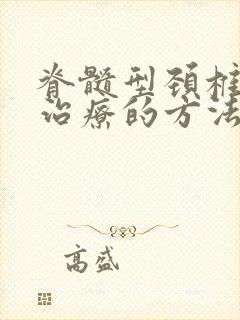 脊髓型颈椎
治疗的方法
高盛